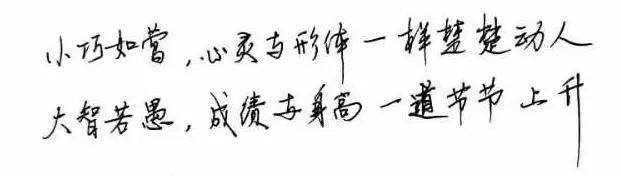 小巧如常,心灵与形体一样楚楚动人
大智若愚,成绩与身高一道节节上升